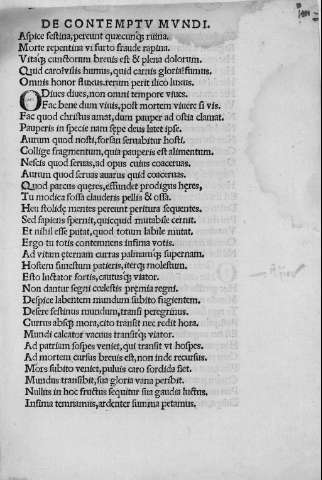 DE CONTEMPTV MVNDI.
Aspice festina, pereunt quæcunq; ruina.
Morte repentina vi furto fraude rapina.
Vitaq; cunctorum breuis est & plena dolorum.
Quid caro? visis humus, quid carnis gloria? fumus.
Omnis honor fluxus. rerum perit ilico luxus.
O Diues diues, non omni tempore viues.
Fac bene dum viuis, post mortem viuere si vis.
Fac quod christus amat, dum pauper ad ostia clamat.
Pauperis in specie nam sepe deus latet ipse.
Aurum quod nosti, forsan seruabitur hosti.
Collige fragmentum, quia pauperis est alimentum.
Nescis quod seruas, ad opus cuius coaceruas.
Aurum quod seruas auarus quid coaceruas.
Quod parcus queres, effundet prodigus hęres,
Tu modica fossa clauderis pellis & ossa.
Heu stolidę mentes pereunt peritura sequentes.
Sed sapiens spernit, quicquid mutabile cernit.
Et nihil esse putat, quod totum labile mutat.
Ergo tu totis contemnens infima votis.
Ad vitam eternam curras palmamq; supernam.
Hostem funestum patieris, iterq; molestum.
Esto luctator fortis, cautusq; viator.
Non dantur segni cœlestis pręmia regni.
Despice labentem mundum subito fugientem.
Desere festinus mundum, transi peregrinus.
Currus absq; mora, cito transit nec redit hora.
Mundi calcator vacuus transitq; viator.
Ad patriam sospes veniet, qui transit vt hospes.
Ad mortem cursus breuis est, non inde recursus.
Mors subito veniet, puluis caro sordida fiet.
Mundus transibit, sua gloria vana peribit.
Nullus in hoc fructus sequitur sua gaudia luctus,
Infima temnamus, ardenter summa petamus.